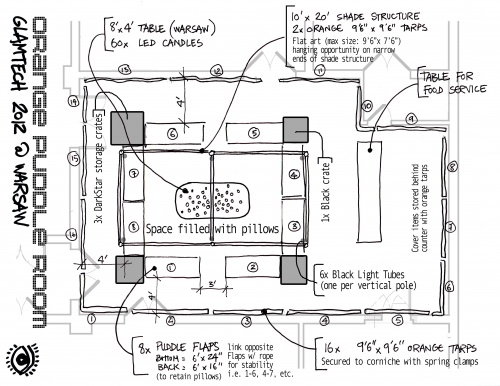 ORANGE PUDDLE ROOM
GLAMTECH 2012 @ WARSAW
8'x4' TABLE (WARSAW)
60x LED CANDLES
10' x 20' SHADE STRUCTURE
2x ORANGE 9'6" x 9'6" TARPS
Flat art (max size: 9'6"x 7'6")
hanging opportunity on narrow
ends of shade structure
TABLE FOR
FOOD SERVICE
13
12
11
14
4'
10
9
3x DarkStar storage crates
6
5
1x Black crate
15
7
4
8
Cover items stored behind
counter with orange tarps
Space filled with pillows
8
3
7
16
4'
1
2
6x Black Light Tubes
(one per vertical pole)
6
4'
3'
1
2
3
4
5
8x PUDDLE FLAPS
BOTTOM = 6' x 24"
BACK = 6' x 16"
(to retain pillows)
link opposite
Flaps w/ rope
for stability
i.e. 1-6, 4-7, etc.
16x 9'6" x 9'6" ORANGE TARPS
Secured to corniche with spring clamps